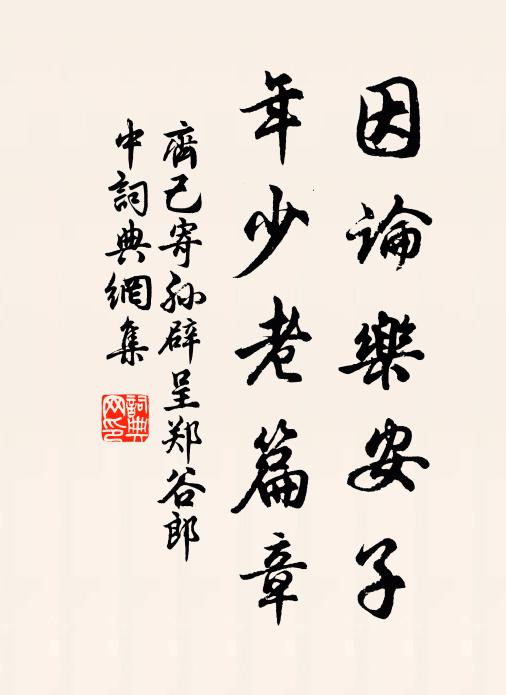 因論樂安子
年少老篇章
齊己寄孙辟呈郑谷郎
中詞典網集
詞典网印